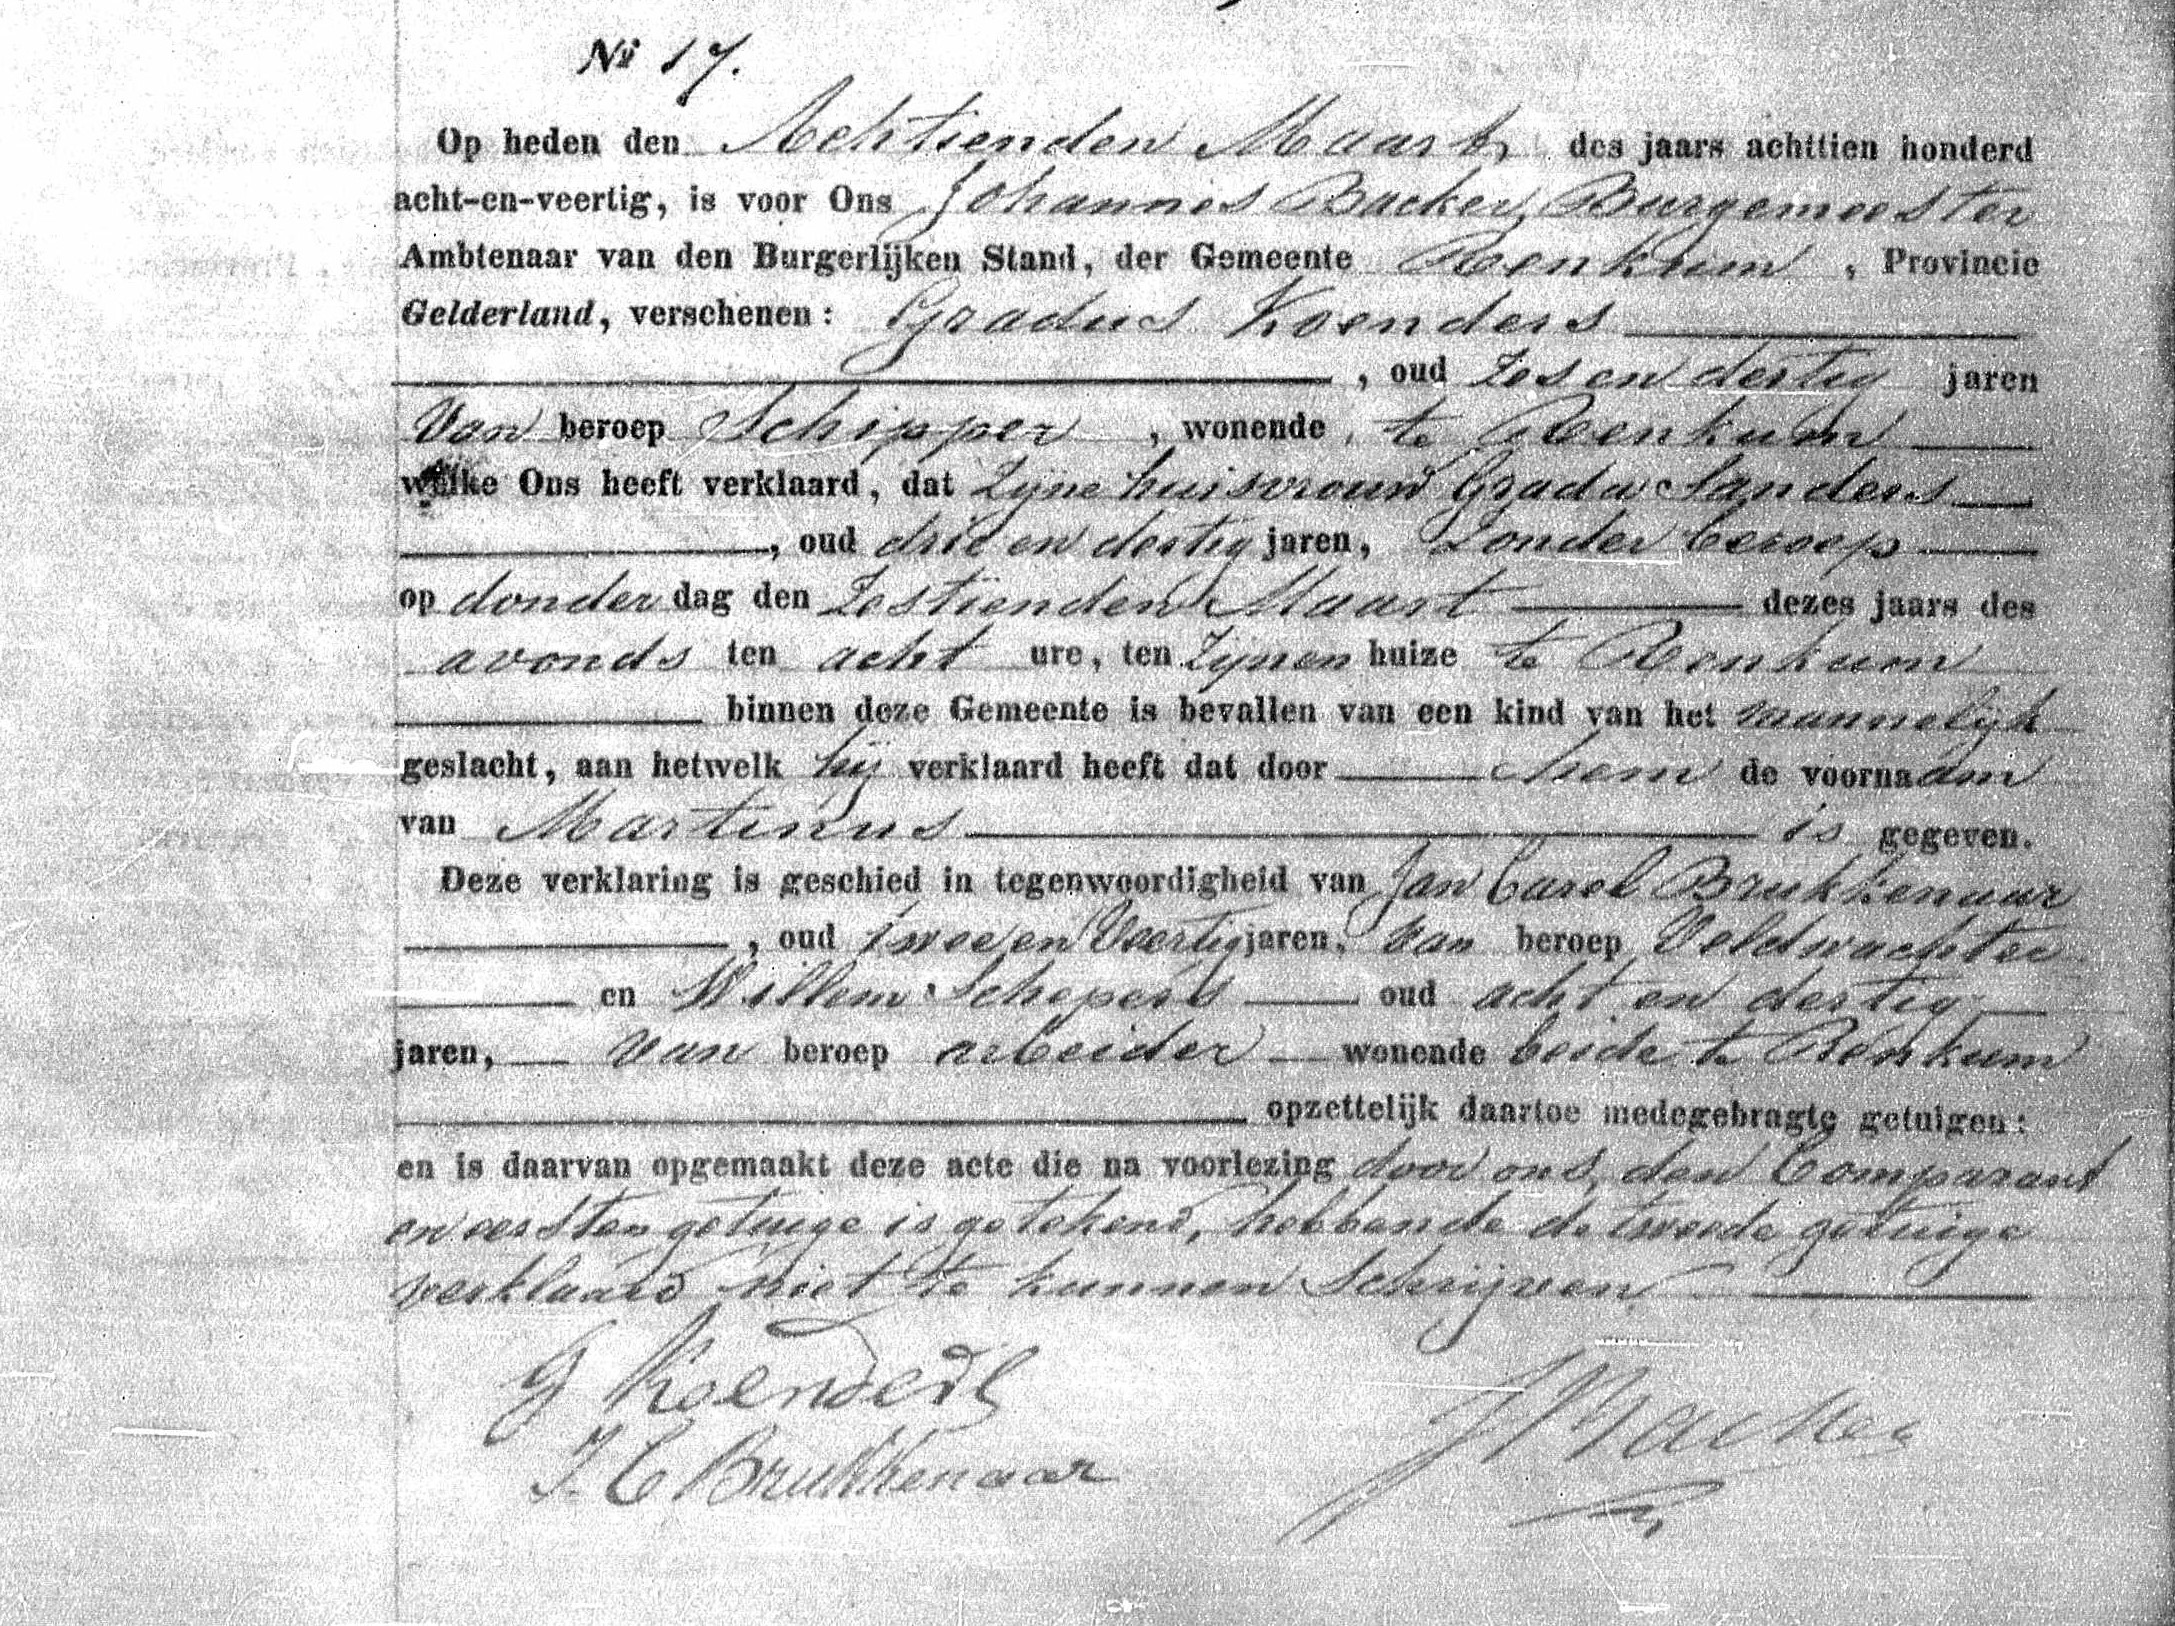 No 17.
Op heden den Achtienden Maart, des jaars achttien honderd
acht-en-veertig, is voor Ons Johannes Backer, Burgemeester
Ambtenaar van den Burgerlijken Stand, der Gemeente Renkum, Provincie
Gelderland, verschenen: Gradus Koenders
, oud Zes en dertig jaren
Van beroep Schipper, wonende te Renkum
welke Ons heeft verklaard, dat Zijne huisvrouw Grada Sanders
, oud drie en dertig jaren, Zonder beroep
op donderdag den Zestienden Maart dezes jaars des
avonds ten acht ure, ten Zijnen huize te Renkum
binnen deze Gemeente is bevallen van een kind van het mannelijk
geslacht, aan hetwelk hij verklaard heeft dat door hem de voornaam
van Martinus is gegeven.
Deze verklaring is geschied in tegenwoordigheid van Jan Carel Brukkenaar
, oud twee en Veertig jaren, van beroep Veldwachter
en Willem Schepers oud acht en dertig
jaren, van beroep arbeider wonende beide te Renkum
opzettelijk daartoe medegebragte getuigen:
en is daarvan opgemaakt deze acte die na voorlezing door ons, den Comparant
en eersten getuige is getekend, hebbende de tweede getuige
verklaard niet te kunnen Schrijven.
G Koenders
J Backer
J. C Brukkenaar